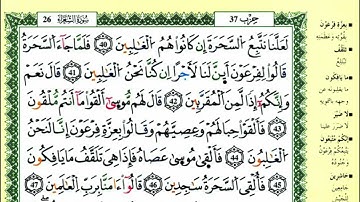 حِزْب 37
سُورَةُ الشُّعَرَاء 26
لَعَلَّنَا نَتَّبِعُ السَّحَرَةَ إِن كَانُوا هُمُ الْغَالِبِينَ 40 فَلَمَّا جَاءَ السَّحَرَةُ
قَالُوا لِفِرْعَوْنَ أَئِنَّ لَنَا لَأَجْرًا إِن كُنَّا نَحْنُ الْغَالِبِينَ 41 قَالَ نَعَمْ
وَإِنَّكُمْ إِذًا لَّمِنَ الْمُقَرَّبِينَ 42 قَالَ لَهُم مُّوسَىٰ أَلْقُوا مَا أَنتُم مُّلْقُونَ
43 فَأَلْقَوْا حِبَالَهُمْ وَعِصِيَّهُمْ وَقَالُوا بِعِزَّةِ فِرْعَوْنَ إِنَّا لَنَحْنُ
الْغَالِبُونَ 44 فَأَلْقَىٰ مُوسَىٰ عَصَاهُ فَإِذَا هِيَ تَلْقَفُ مَا يَأْفِكُونَ
45 فَأُلْقِيَ السَّحَرَةُ سَاجِدِينَ 46 قَالُوا ءَامَنَّا بِرَبِّ الْعَالَمِينَ 47
بِعِزَّة فِرْعَوْنَ
بقوته وعظمته
تَلْقَفُ
تبتلع
مَا يَأْفِكُونَ
لا ضَيْرَ
لا ضرر علينا
حَاشِرِينَ